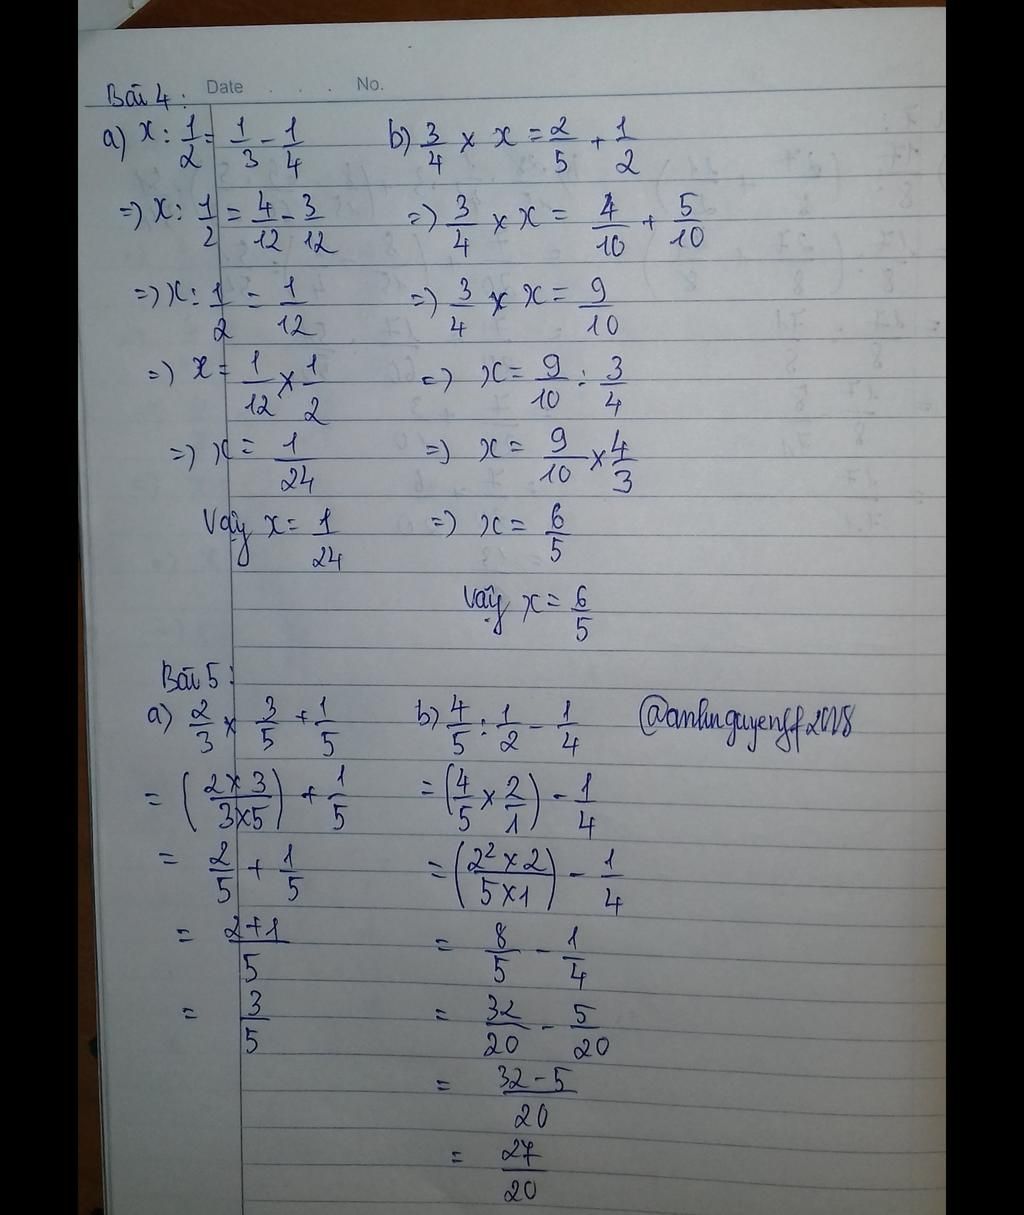 Date . . . No.
Bài 4:
a) x : 1/2 = 1/3 - 1/4
=> x : 1/2 = 4/12 - 3/12
=> x : 1/2 = 1/12
=> x = 1/12 × 1/2
=> x = 1/24
Vậy x = 1/24
b) 3/4 × x = 2/5 + 1/2
=> 3/4 × x = 4/10 + 5/10
=> 3/4 × x = 9/10
=> x = 9/10 : 3/4
=> x = 9/10 × 4/3
=> x = 6/5
Vậy x = 6/5
Bài 5:
a) 2/3 × 3/5 + 1/5
= (2×3/3×5) + 1/5
= 2/5 + 1/5
= 2+1/5
= 3/5
b) 4/5 : 1/2 - 1/4
= (4/5 × 2/1) - 1/4
= (2² × 2/5×1) - 1/4
= 8/5 - 1/4
= 32/20 - 5/20
= 32-5/20
= 27/20